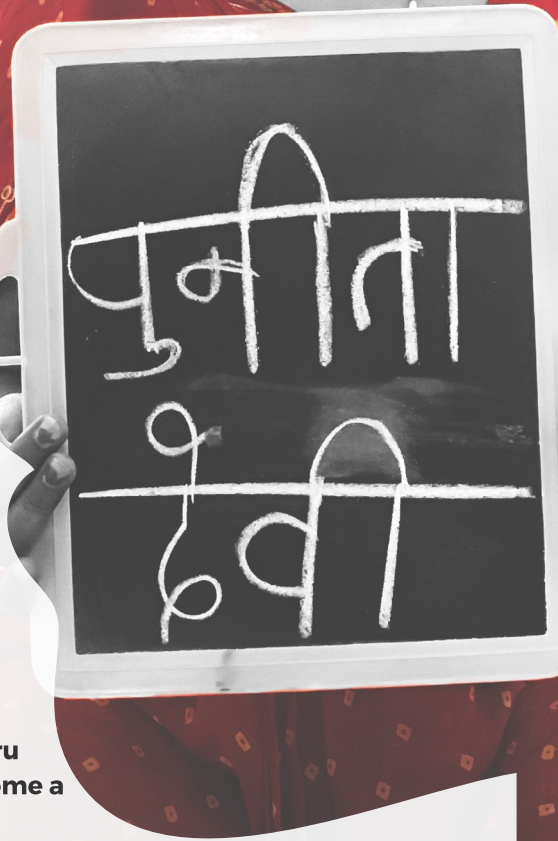 पुनीता
देवी
ru
ome a